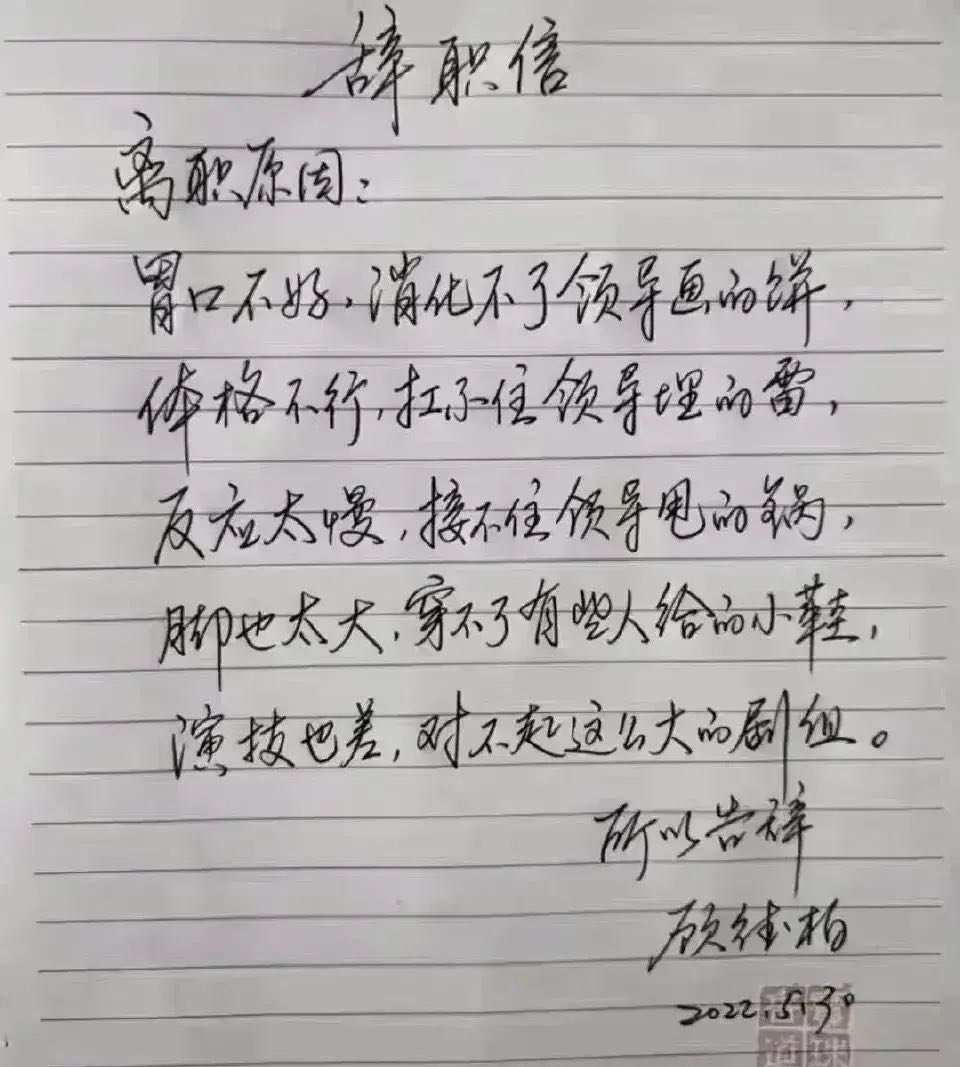 辞职信
离职原因:
胃口不好,消化不了领导画的饼,
体格不行,扛不住领导埋的雷,
反应太慢,接不住领导甩的锅,
脚也太大,穿不了有些人给的小鞋,
演技也差,对不起这么大的剧组。
所以告辞
顾德柏
2022.5.30